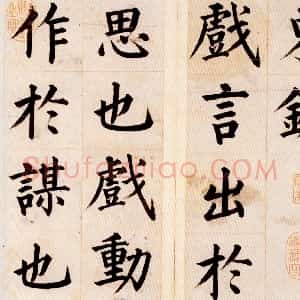 戲言出於
思也戲動
作於謀也